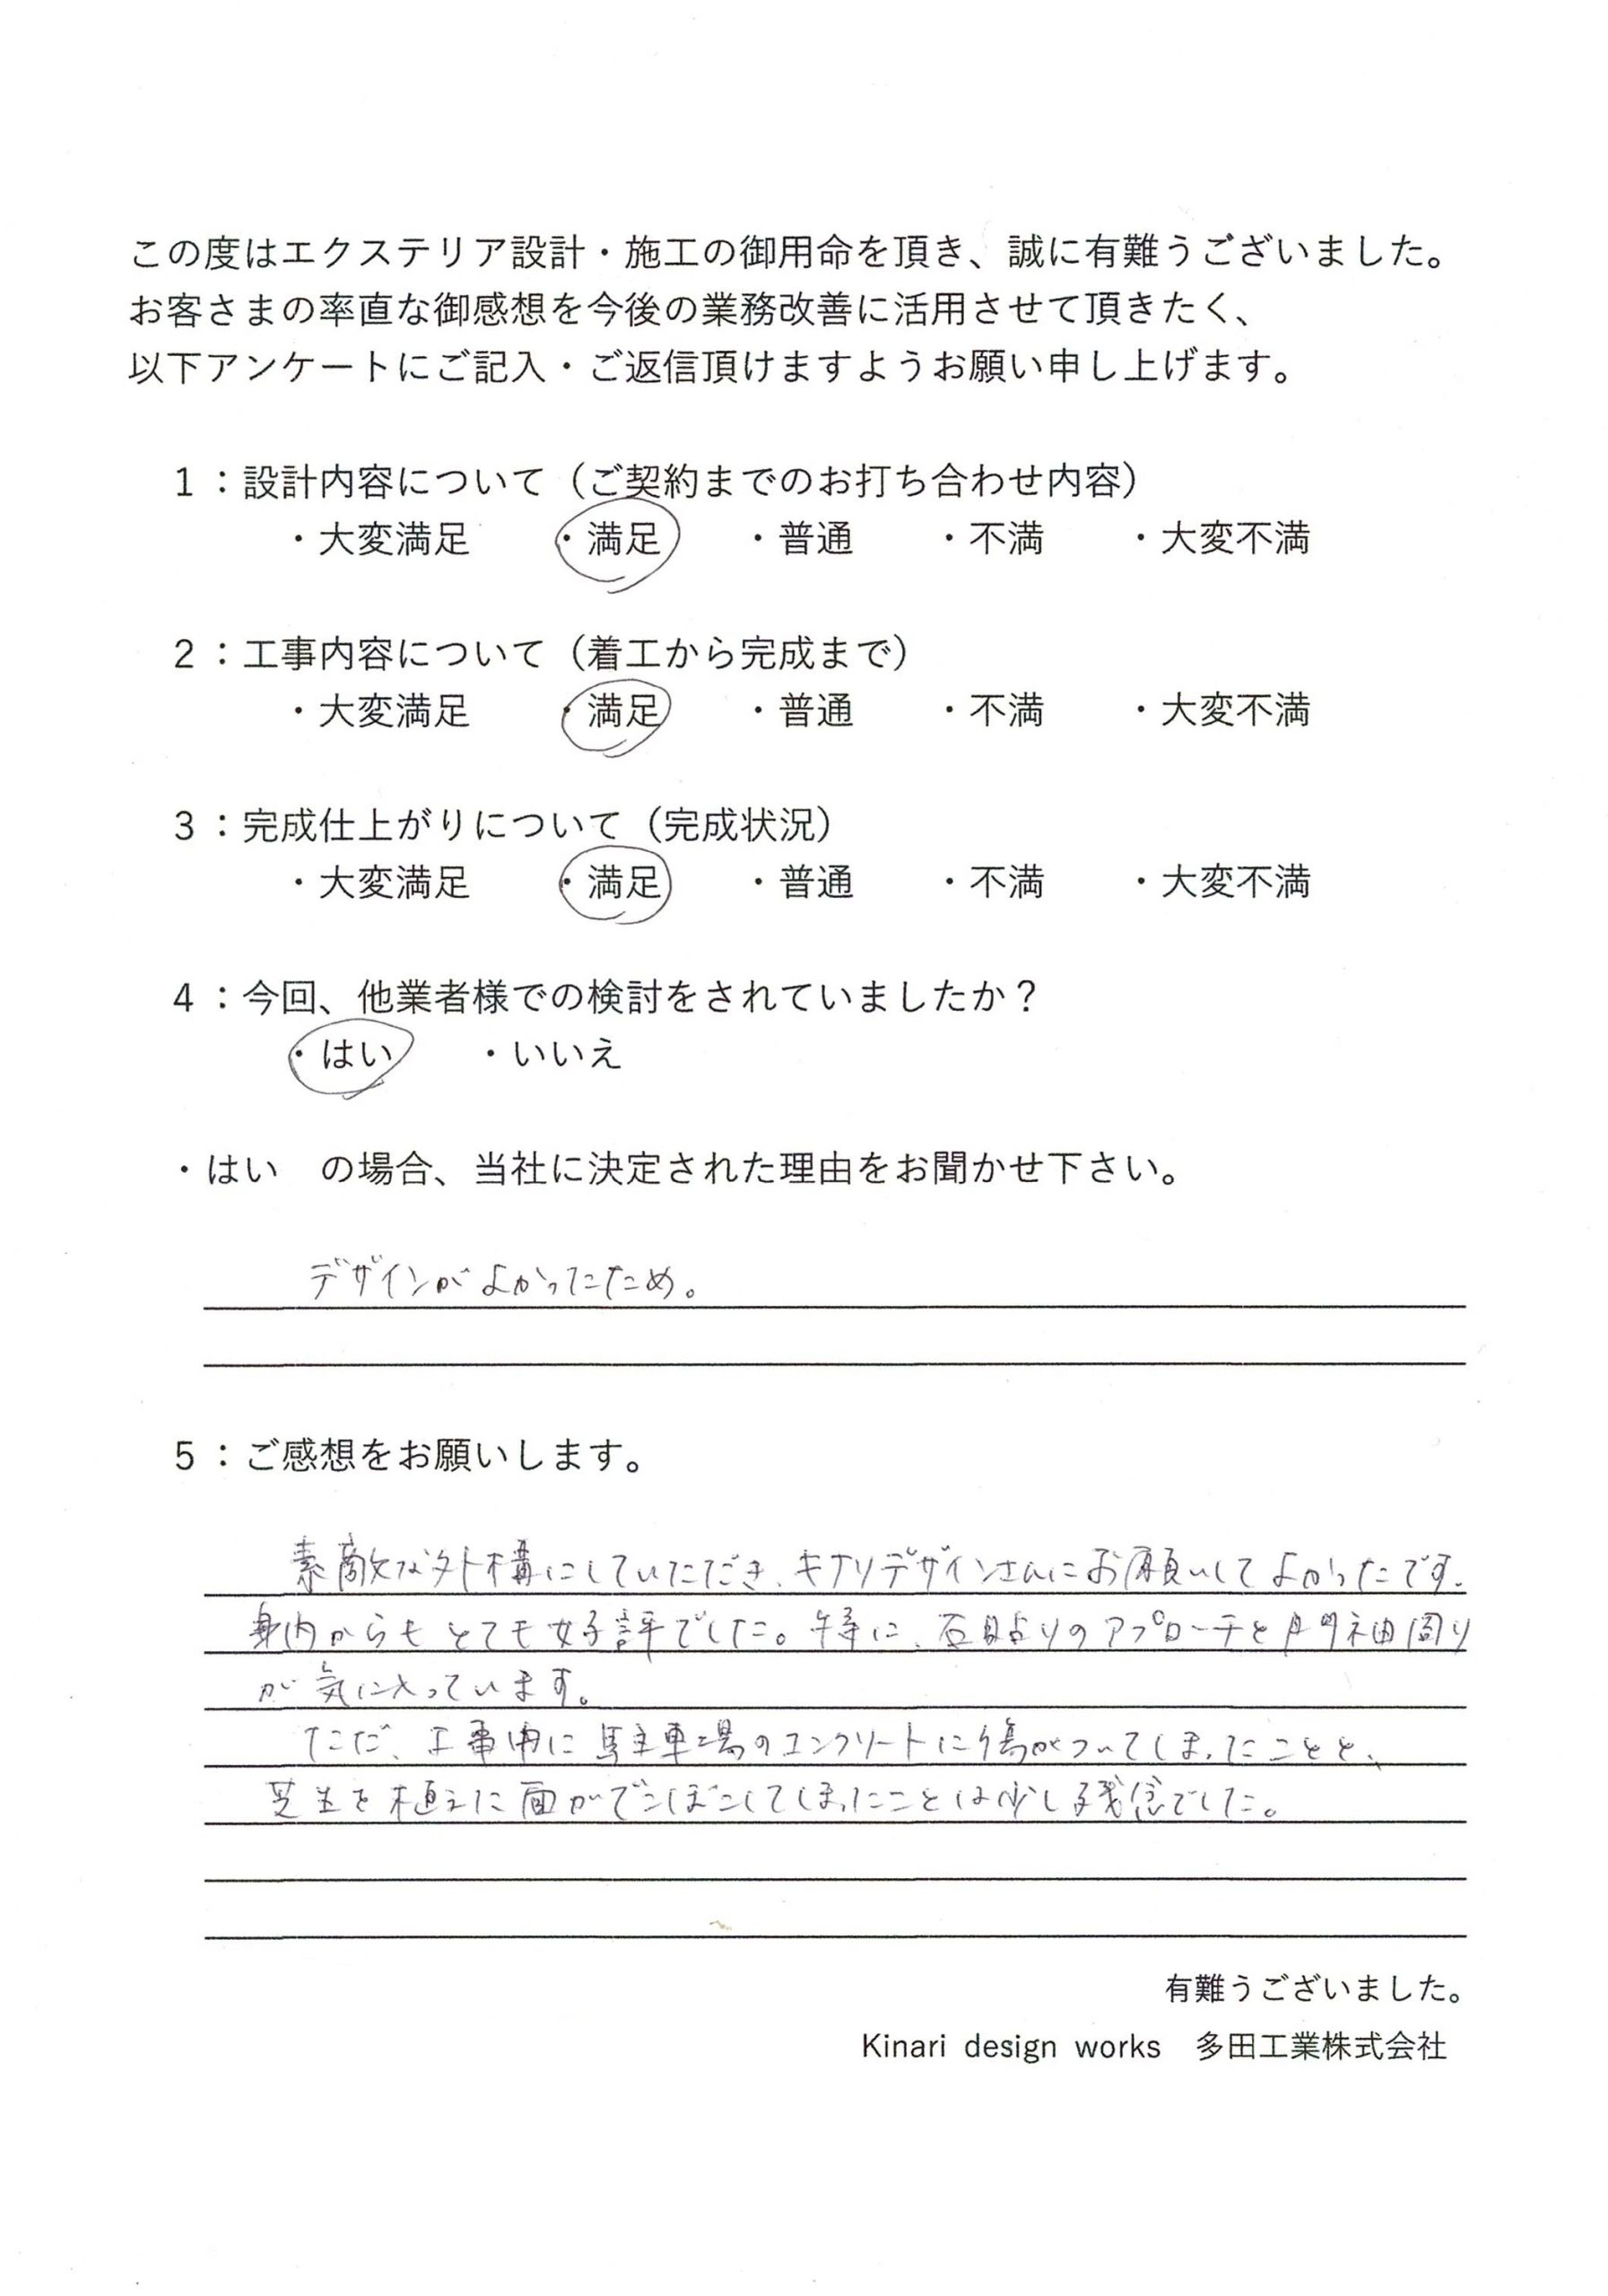 この度はエクステリア設計・施工の御用命を頂き、誠に有難うございました。
お客さまの率直な御感想を今後の業務改善に活用させて頂きたく、
以下アンケートにご記入・ご返信頂けますようお願い申し上げます。
1：設計内容について（ご契約までのお打ち合わせ内容）
・大変満足 ・満足 ・普通 ・不満 ・大変不満
2：工事内容について（着工から完成まで）
・大変満足 ・満足 ・普通 ・不満 ・大変不満
3：完成仕上がりについて（完成状況）
・大変満足 ・満足 ・普通 ・不満 ・大変不満
4：今回、他業者様での検討をされていましたか？
・はい ・いいえ
・はい　の場合、当社に決定された理由をお聞かせ下さい。
デザインがよかったため。
5：ご感想をお願いします。
素敵な外構にしていただき、キナリデザインさんにお願いしてよかったです。
身内からもとても好評でした。特に、石貼りのアプローチと門袖周り
が気に入っています。
ただ、工事中に駐車場のコンクリートに傷がついてしまったことと、
芝生を植えた面がでこぼこしてしまったことは少し残念でした。
有難うございました。
Kinari design works　多田工業株式会社